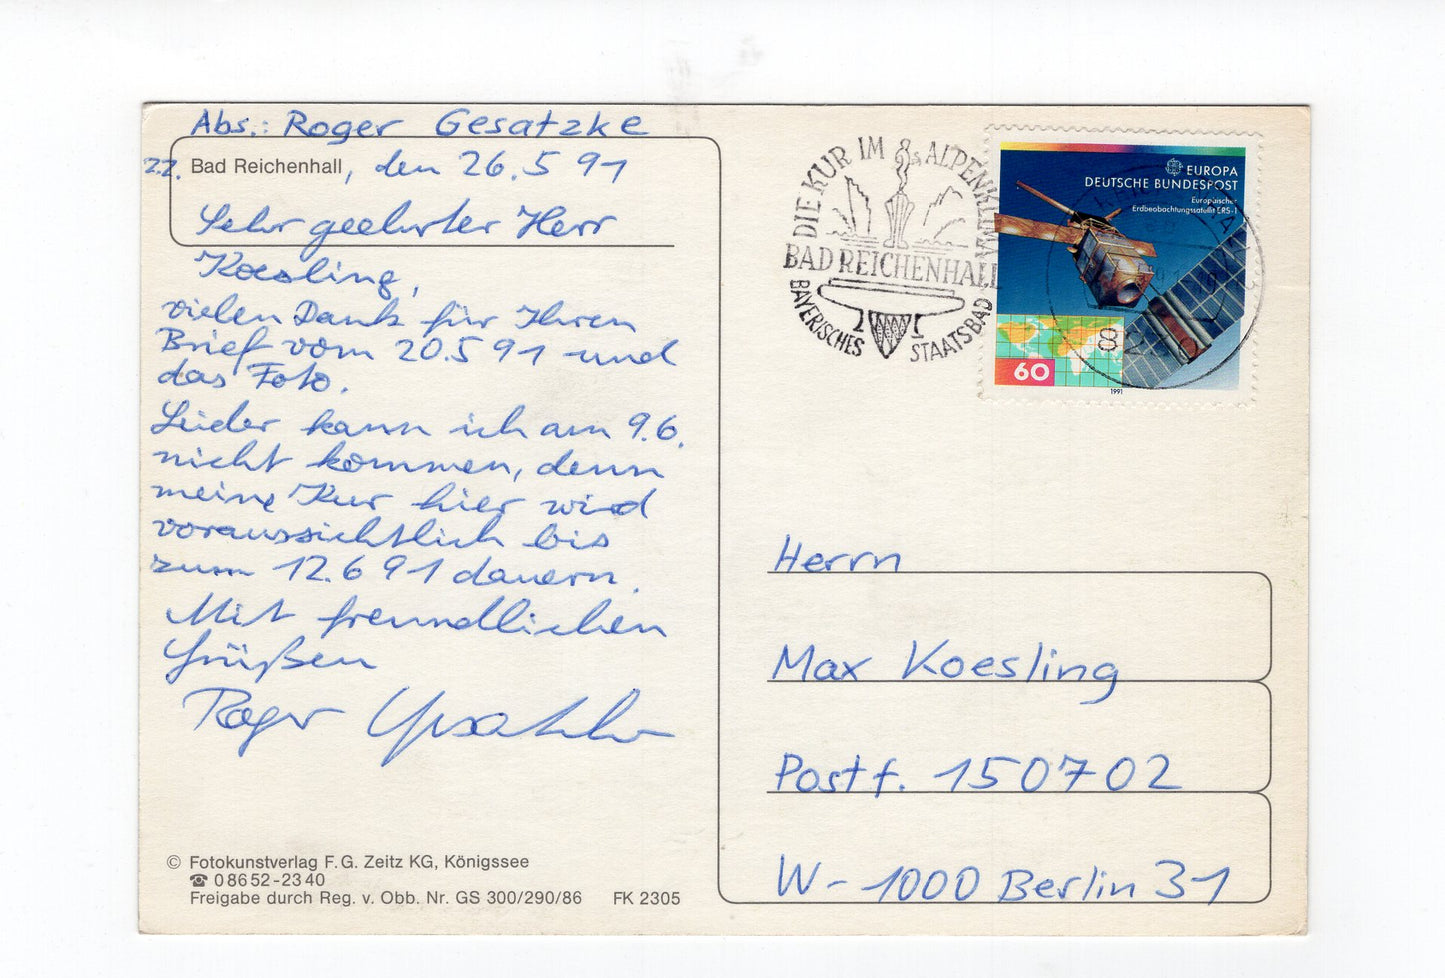 Abs.: Roger Gesatzke
z.Z. Bad Reichenhall, den 26.5 91
Sehr geehrter Herr
Koesling,
vielen Dank für Ihren
Brief vom 20.5 91 und
das Foto.
Leider kann ich am 9.6.
nicht kommen, denn
meine Kur hier wird
voraussichtlich bis
zum 12.6 91 dauern.
Mit freundlichen
Grüßen
Roger Gesatzke
© Fotokunstverlag F. G. Zeitz KG, Königssee
☎ 0 86 52 - 23 40
Freigabe durch Reg. v. Obb. Nr. GS 300/290/86 FK 2305
DIE KUR IM ALPENKLIMA
BAD REICHENHALL
BAYERISCHES STAATSBAD
EUROPA
DEUTSCHE BUNDESPOST
Europäischer
Erdbeobachtungssatellit ERS-1
60
1991
Herrn
Max Koesling
Postf. 150702
W - 1000 Berlin 31